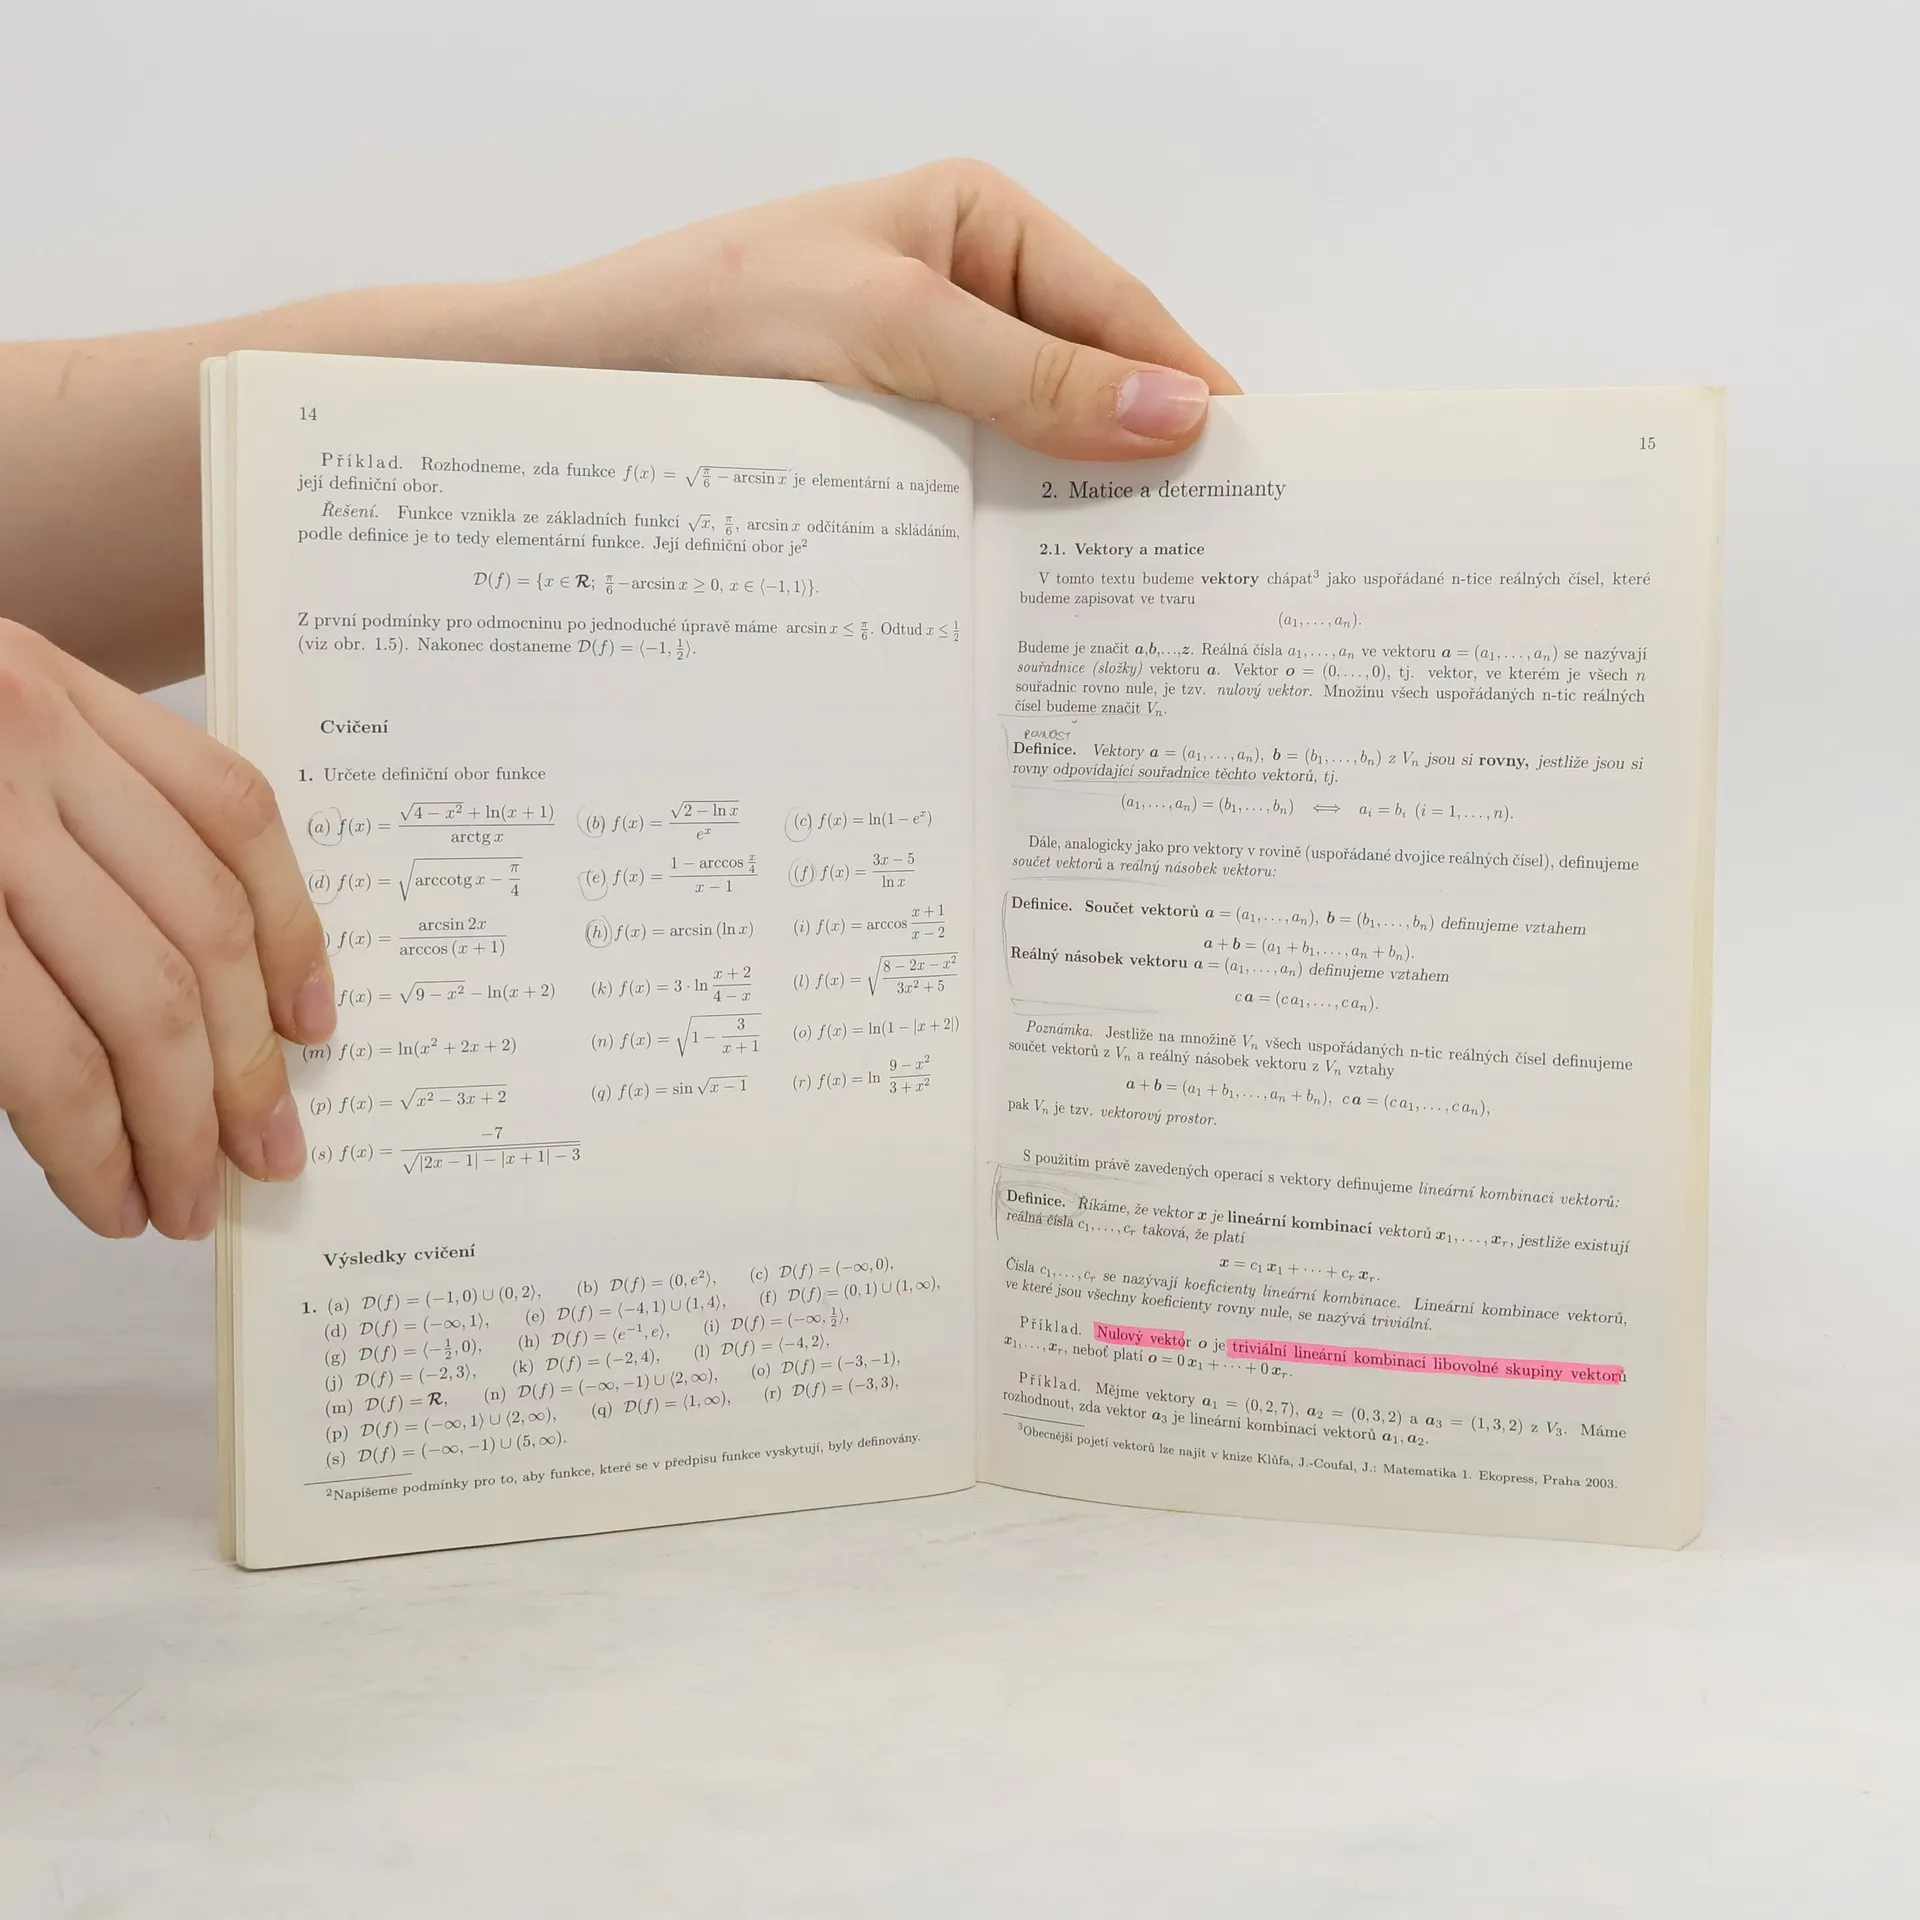 14
Příklad. Rozhodneme, zda funkce f(x) = √(π/6 − arcsin x) je elementární a najdeme
její definiční obor.
Řešení. Funkce vznikla ze základních funkcí √x, π/6, arcsin x odčítáním a skládáním,
podle definice je to tedy elementární funkce. Její definiční obor je²
D(f) = {x ∈ R; π/6 − arcsin x ≥ 0, x ∈ ⟨−1, 1⟩}.
Z první podmínky pro odmocninu po jednoduché úpravě máme arcsin x ≤ π/6. Odtud x ≤ 1/2
(viz obr. 1.5). Nakonec dostaneme D(f) = ⟨−1, 1/2⟩.
Cvičení
1. Určete definiční obor funkce
(a) f(x) = (√(4 − x²) + ln(x + 1))/(arctg x) (b) f(x) = √(2 − ln x)/eˣ (c) f(x) = ln(1 − eˣ)
(d) f(x) = √(arccotg x − π/4) (e) f(x) = (1 − arccos x/4)/(x − 1) (f) f(x) = (3x − 5)/(ln x)
) f(x) = (arcsin 2x)/(arccos (x + 1)) (h) f(x) = arcsin (ln x) (i) f(x) = arccos (x + 1)/(x − 2)
f(x) = √(9 − x²) − ln(x + 2) (k) f(x) = 3 · ln (x + 2)/(4 − x) (l) f(x) = √((8 − 2x − x²)/(3x² + 5))
(m) f(x) = ln(x² + 2x + 2) (n) f(x) = √(1 − 3/(x + 1)) (o) f(x) = ln(1 − |x + 2|)
(p) f(x) = √(x² − 3x + 2) (q) f(x) = sin √(x − 1) (r) f(x) = ln (9 − x²)/(3 + x²)
(s) f(x) = −7/√(|2x − 1| − |x + 1| − 3)
Výsledky cvičení
1. (a) D(f) = (−1, 0) ∪ (0, 2⟩, (b) D(f) = (0, e²⟩, (c) D(f) = (−∞, 0),
(d) D(f) = (−∞, 1⟩, (e) D(f) = ⟨−4, 1) ∪ (1, 4⟩, (f) D(f) = (0, 1) ∪ (1, ∞),
(g) D(f) = ⟨−1/2, 0), (h) D(f) = ⟨e⁻¹, e⟩, (i) D(f) = (−∞, 1/2⟩,
(j) D(f) = (−2, 3⟩, (k) D(f) = (−2, 4), (l) D(f) = ⟨−4, 2⟩,
(m) D(f) = R, (n) D(f) = (−∞, −1) ∪ ⟨2, ∞), (o) D(f) = (−3, −1),
(p) D(f) = (−∞, 1⟩ ∪ ⟨2, ∞), (q) D(f) = ⟨1, ∞), (r) D(f) = (−3, 3),
(s) D(f) = (−∞, −1) ∪ (5, ∞).
²Napíšeme podmínky pro to, aby funkce, které se v předpisu funkce vyskytují, byly definovány.
15
2. Matice a determinanty
2.1. Vektory a matice
V tomto textu budeme vektory chápat³ jako uspořádané n-tice reálných čísel, které
budeme zapisovat ve tvaru
(a₁, . . . , aₙ).
Budeme je značit a,b,...,z. Reálná čísla a₁, . . . , aₙ ve vektoru a = (a₁, . . . , aₙ) se nazývají
souřadnice (složky) vektoru a. Vektor o = (0, . . . , 0), tj. vektor, ve kterém je všech n
souřadnic rovno nule, je tzv. nulový vektor. Množinu všech uspořádaných n-tic reálných
čísel budeme značit Vₙ.
ROVNOST
Definice. Vektory a = (a₁, . . . , aₙ), b = (b₁, . . . , bₙ) z Vₙ jsou si rovny, jestliže jsou si
rovny odpovídající souřadnice těchto vektorů, tj.
(a₁, . . . , aₙ) = (b₁, . . . , bₙ) ⟺ aᵢ = bᵢ (i = 1, . . . , n).
Dále, analogicky jako pro vektory v rovině (uspořádané dvojice reálných čísel), definujeme
součet vektorů a reálný násobek vektoru:
Definice. Součet vektorů a = (a₁, . . . , aₙ), b = (b₁, . . . , bₙ) definujeme vztahem
a + b = (a₁ + b₁, . . . , aₙ + bₙ).
Reálný násobek vektoru a = (a₁, . . . , aₙ) definujeme vztahem
c a = (c a₁, . . . , c aₙ).
Poznámka. Jestliže na množině Vₙ všech uspořádaných n-tic reálných čísel definujeme
součet vektorů z Vₙ a reálný násobek vektoru z Vₙ vztahy
a + b = (a₁ + b₁, . . . , aₙ + bₙ), c a = (c a₁, . . . , c aₙ),
pak Vₙ je tzv. vektorový prostor.
S použitím právě zavedených operací s vektory definujeme lineární kombinaci vektorů:
Definice. Říkáme, že vektor x je lineární kombinací vektorů x₁, . . . , xᵣ, jestliže existují
reálná čísla c₁, . . . , cᵣ taková, že platí
x = c₁ x₁ + · · · + cᵣ xᵣ.
Čísla c₁, . . . , cᵣ se nazývají koeficienty lineární kombinace. Lineární kombinace vektorů,
ve které jsou všechny koeficienty rovny nule, se nazývá triviální.
Příklad. Nulový vektor o je triviální lineární kombinací libovolné skupiny vektorů
x₁, . . . , xᵣ, neboť platí o = 0 x₁ + · · · + 0 xᵣ.
Příklad. Mějme vektory a₁ = (0, 2, 7), a₂ = (0, 3, 2) a a₃ = (1, 3, 2) z V₃. Máme
rozhodnout, zda vektor a₃ je lineární kombinací vektorů a₁, a₂.
³Obecnější pojetí vektorů lze najít v knize Klůfa, J.-Coufal, J.: Matematika 1. Ekopress, Praha 2003.